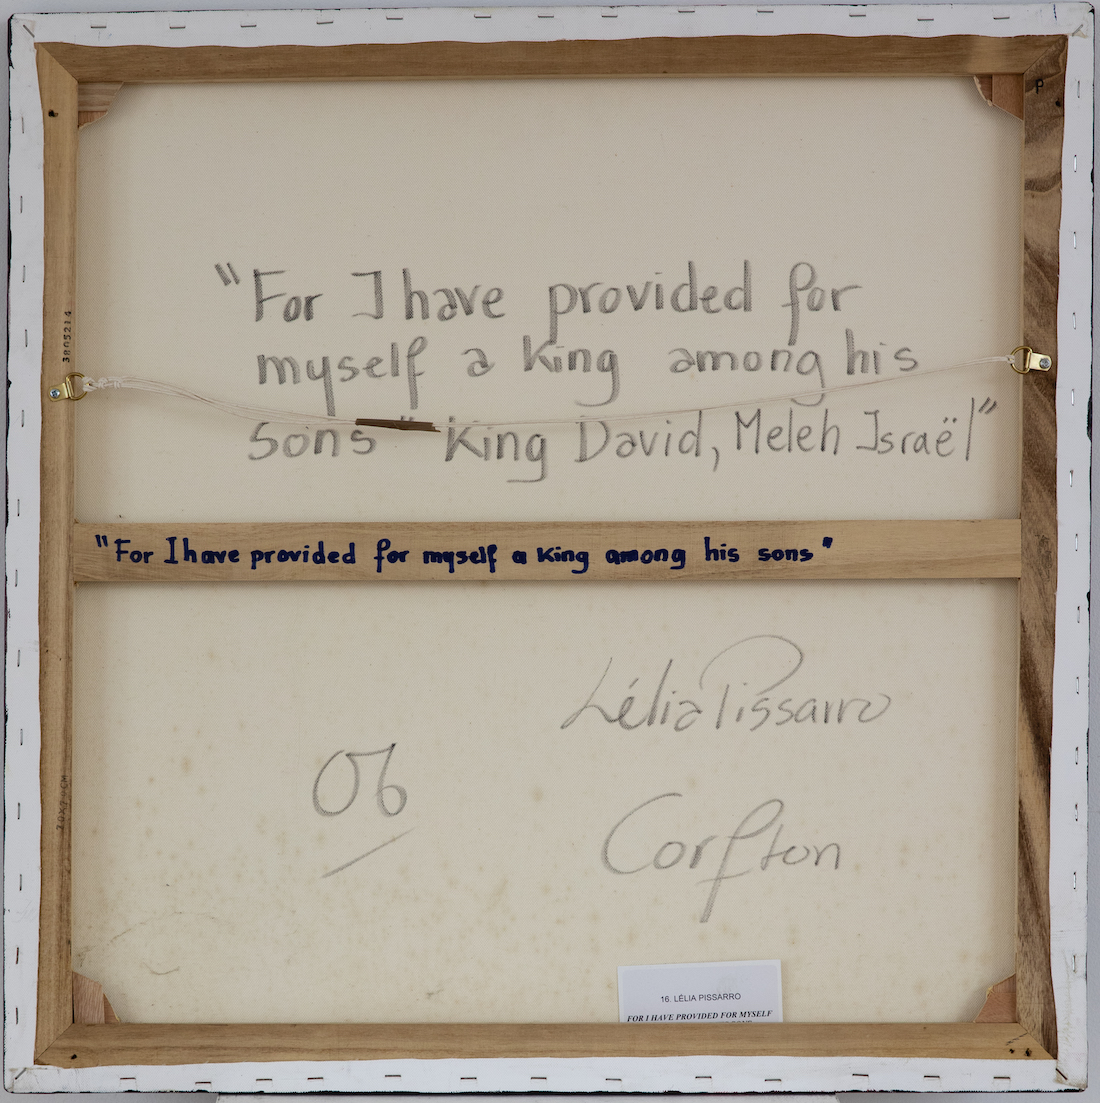 "For I have provided for
myself a King among his
sons" King David, Meleh Israël"
"For I have provided for myself a King among his sons"
Lélia Pissarro
06
Corfton
16. LÉLIA PISSARRO
FOR I HAVE PROVIDED FOR MYSELF
3805214
P